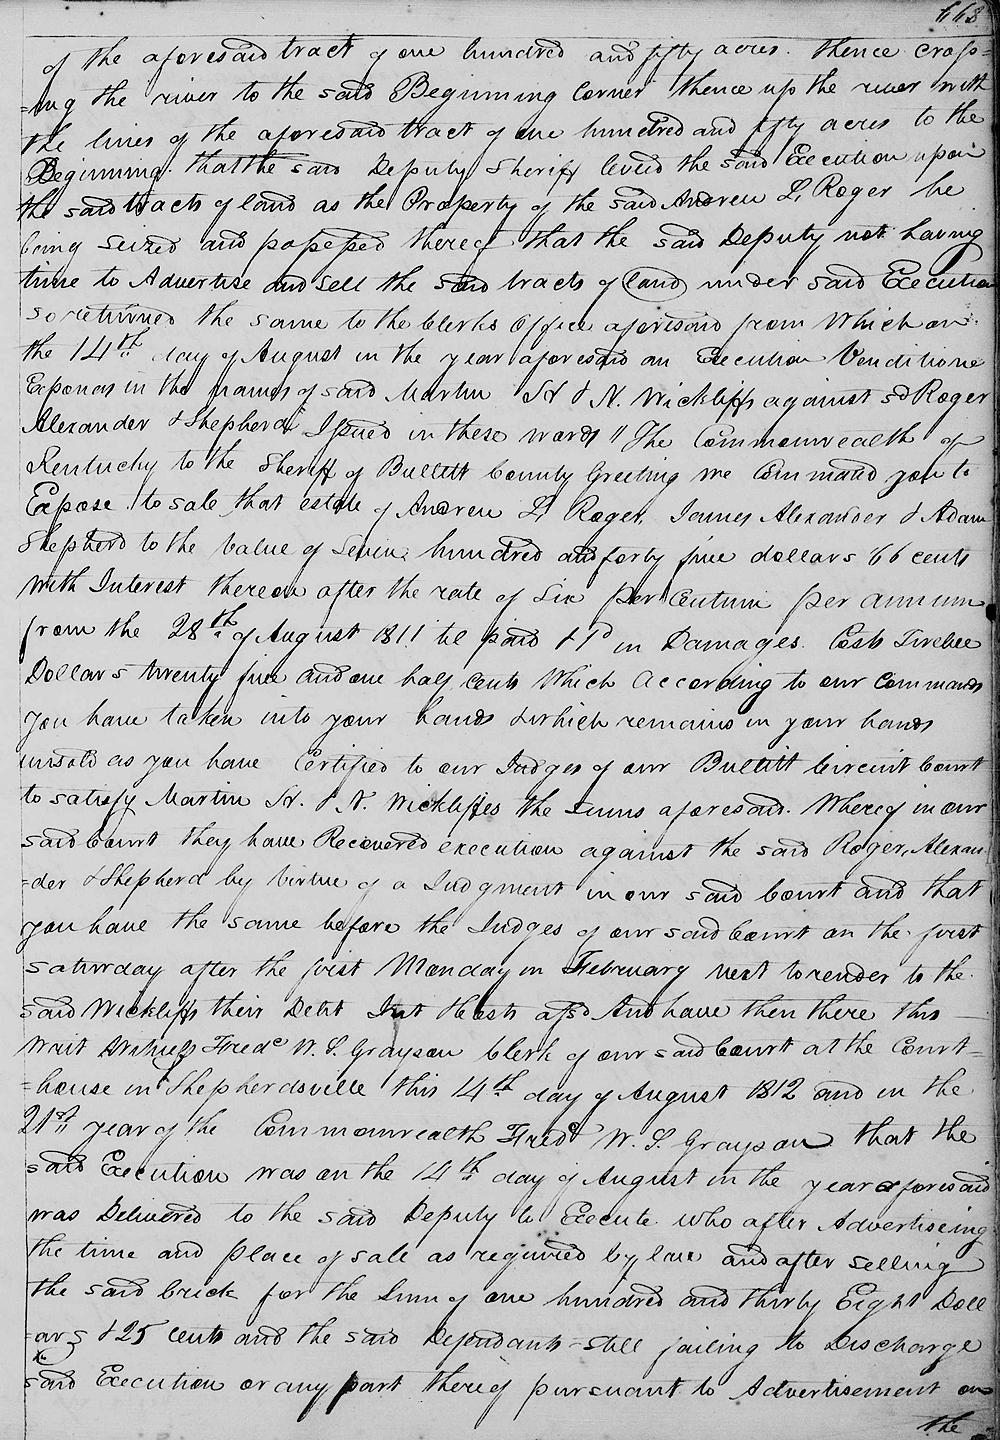 668
of the aforesaid tract of one hundred and fifty acres. thence cross=
=ing the river to the said Beginning Corner thence up the river with
the lines of the aforesaid tract of one hundred and fifty acres to the
Beginning. that the said Deputy Sheriff levied the said Execution upon
the said tracts of land as the Property of the said Andrew L, Roger he
being seized and possessed thereof that the said Deputy not having
time to Advertise and sell the said tracts of land under said Execution
so returned the same to the Clerks Office aforesaid from Which on
the 14th day of August in the year aforesaid an Execution Venditione
Exponas in the names of said Martin H & N. Wickliffs against sd Roger
Alexander & Shepherd Issued in these words " The Commonwealth of
Kentucky to the Sheriff of Bullitt County Greeting we Commaed you to
Expose to sale that estate of Andrew L, Roger, James Alexander & Adam
Shepherd to the Value of Seven hundred and forty five dollars 66 cents
With Interest thereon after the rate of Six per Centum per annum
from the 28th of August 1811 til paid & 1d in Damages. Costs Twelve
Dollars twenty five and one half cents Which According to our Commands
you have taken into your hands & which remains in your hands
unsold as you have Certified to our Judges of our Bullitt Circuit Court
to satisfy Martin H. & N. Wickliffes the sums aforesaid. Whereof in our
said Court they have Recovered execution against the said Roger, Alexan
=der & Shepherd by Virtue of a Judgment in our said Court and that
you have the same before the Judges of our said Court on the first
saturday after the first Monday in February next to render to the
said Wickliffs their Debt Int & Costs afsd And have then there this
Writ Witness Fredc W. S. Grayson Clerk of our said Court at the Court=
=house in Shepherdsville this 14th day of August 1812 and in the
21st year of the Commonwealth Fredc W. S. Grayson that the
said Execution was on the 14th day of August in the year aforesaid
was Delivered to the said Deputy to Execute who after Advertiseing
the time and place of sale as required by law and after selling
the said brick for the Sum of one hundred and thirty Eight Doll
=ars & 25 cents and the said Defendants still failing to Discharge
said Execution or any part thereof pursuant to Advertisement on
the